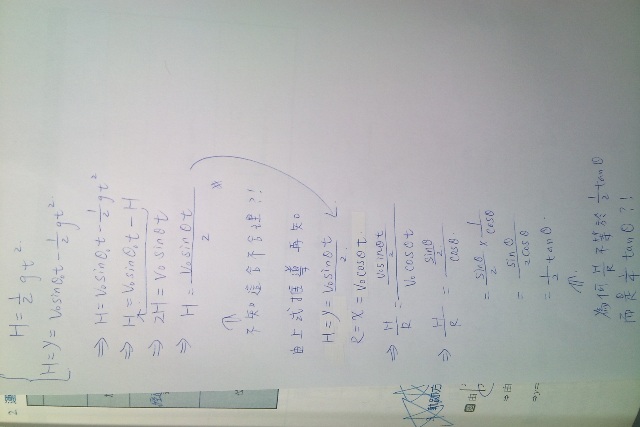 H = 1/2 gt²
H = y = V₀sinθ₁t - 1/2 gt²
⇒ H = V₀sinθ₁t - 1/2 gt²
⇒ H = V₀sinθ₁t - H
⇒ 2H = V₀sinθt
⇒ H = V₀sinθt / 2
⇑
不知這合不合理?!
由上式推導再知
H = y = V₀sinθt / 2
R = x = V₀cosθt
⇒ H/R = (V₀sinθt / 2) / V₀cosθt
⇒ H/R = (sinθ / 2) / cosθ
= sinθ/2 × 1/cosθ
= sinθ / 2cosθ
= 1/2 tanθ
⇑
為何 H/R 不等於 1/2 tanθ
而是 1/4 tanθ ?!